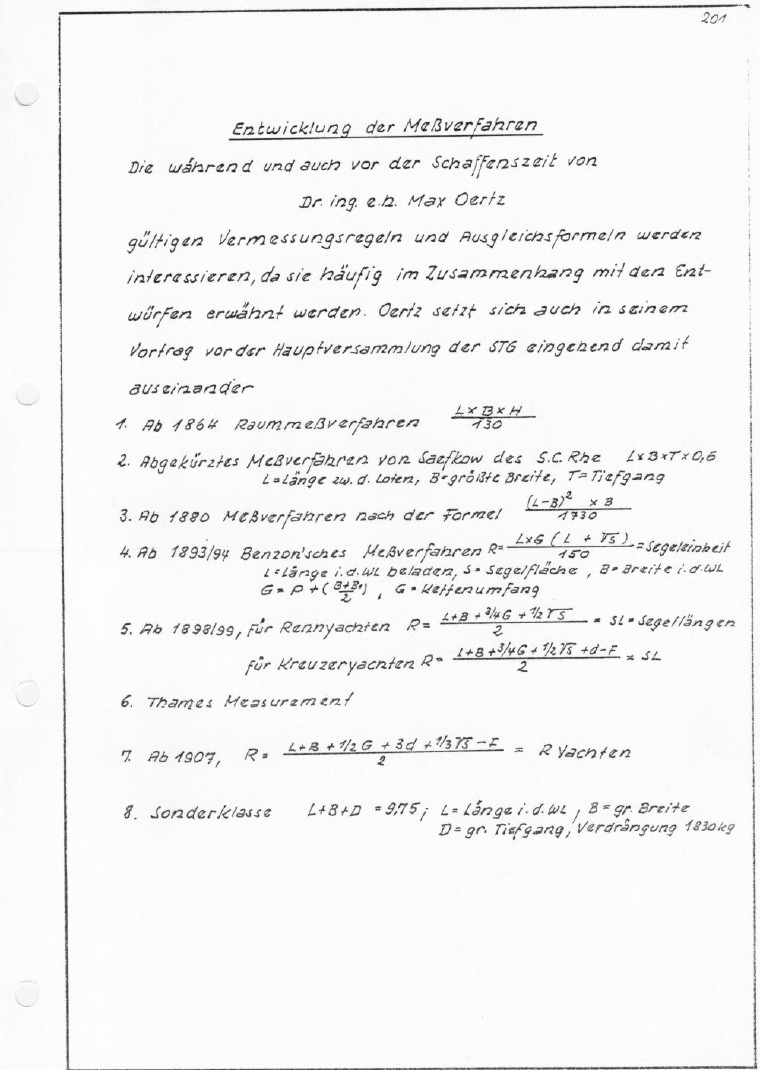 201
Entwicklung der Meßverfahren
Die während und auch vor der Schaffenszeit von
Dr. ing. e.h. Max Oertz
gültigen Vermessungsregeln und Ausgleichsformeln werden
interessieren, da sie häufig im Zusammenhang mit den Ent-
würfen erwähnt werden. Oertz setzt sich auch in seinem
Vortrag vor der Hauptversammlung der STG eingehend damit
auseinander
1. Ab 1864 Raummeßverfahren (L×B×H)/130
2. Abgekürztes Meßverfahren von Saefkow des S.C. Rhe L×B×T×0,6
L=Länge zw. d. Loten, B=größte Breite, T=Tiefgang
3. Ab 1880 Meßverfahren nach der Formel ((L-B)² × B)/1730
4. Ab 1893/94 Benzon'sches Meßverfahren R= (L×G (L + √S))/150 =Segeleinheit
L=Länge i.d.WL beladen, S=Segelfläche, B=Breite i.d.WL
G= P+((B+B₁)/2), G=Kettenumfang
5. Ab 1898/99, für Rennyachten R= (L+B+3/4G+1/2√S)/2 = SL=Segellängen
für Kreuzeryachten R= (L+B+3/4G+1/2√S+d-F)/2 = SL
6. Thames Measurement
7. Ab 1907, R= (L+B+1/2G+3d+1/3√S-F)/2 = R Yachten
8. Sonderklasse L+B+D =9,75; L=Länge i.d.WL, B=gr. Breite
D=gr. Tiefgang, Verdrängung 1830kg